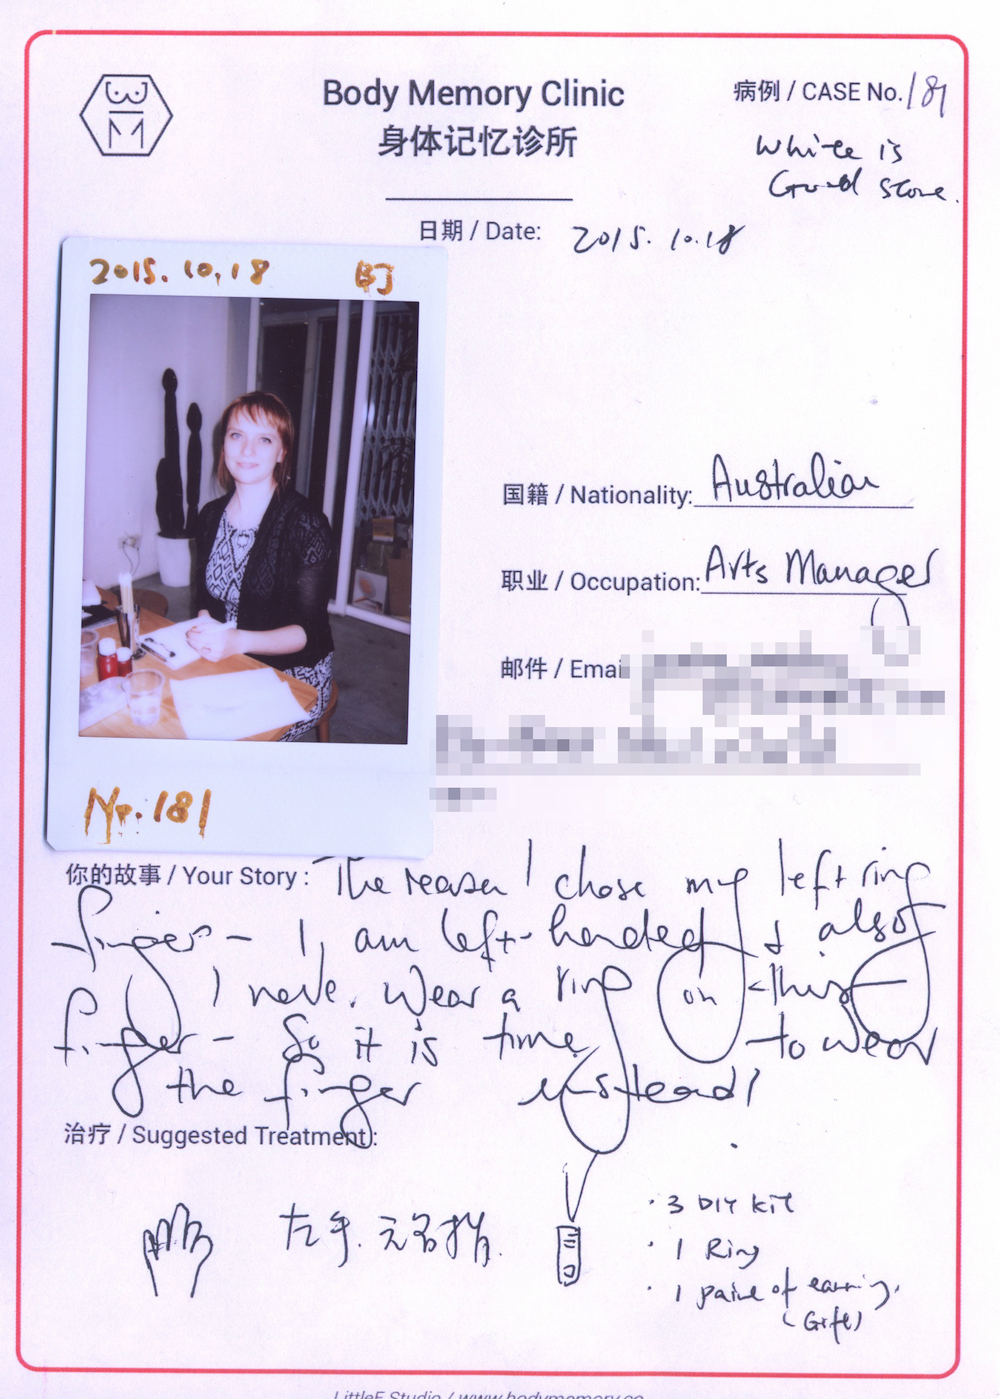 Body Memory Clinic
身体记忆诊所
病例 / CASE No. 181
White is
Good stone.
日期 / Date: 2015. 10. 18
2015. 10. 18 BJ
No. 181
国籍 / Nationality: Australian
职业 / Occupation: Arts Manager
邮件 / Emai
你的故事 / Your Story : The reason I chose my left ring
finger - I am left-handed & also
I neve. wear a ring on this
finger - So it is time to wear
the finger instead!
治疗 / Suggested Treatment :
左手. 无名指.
· 3 DIY kit
· 1 Ring
· 1 paire of earring.
(Gift)
LittleF Studio / www.bodymemory.co